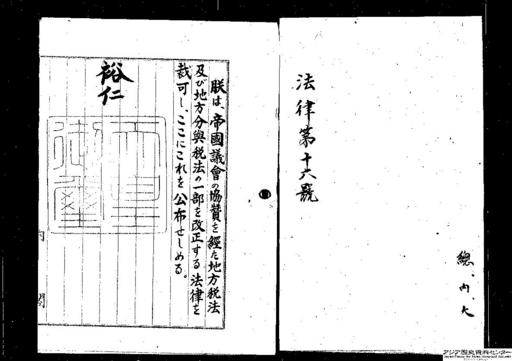 法律第十六號
總、內、大
朕は、帝國議會の協贊を經た地方税法
及び地方分與税法の一部を改正する法律を
裁可し、ここにこれを公布せしめる。
裕仁
天皇御璽
內閣
アジア歴史資料センター